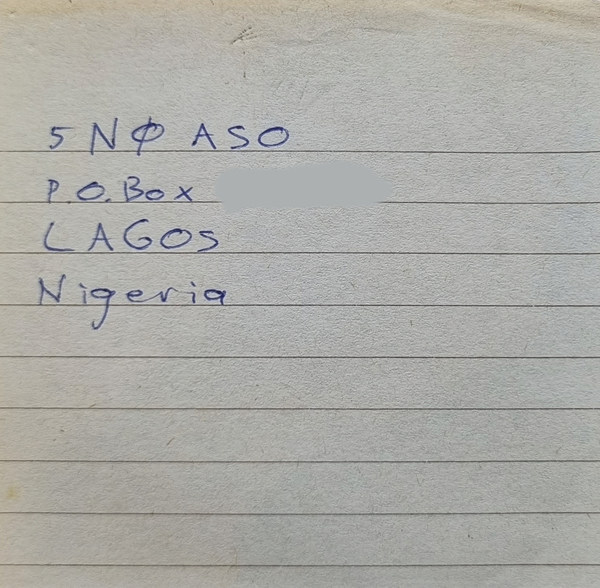 5NØ ASO
P.O.Box
LAGOS
Nigeria